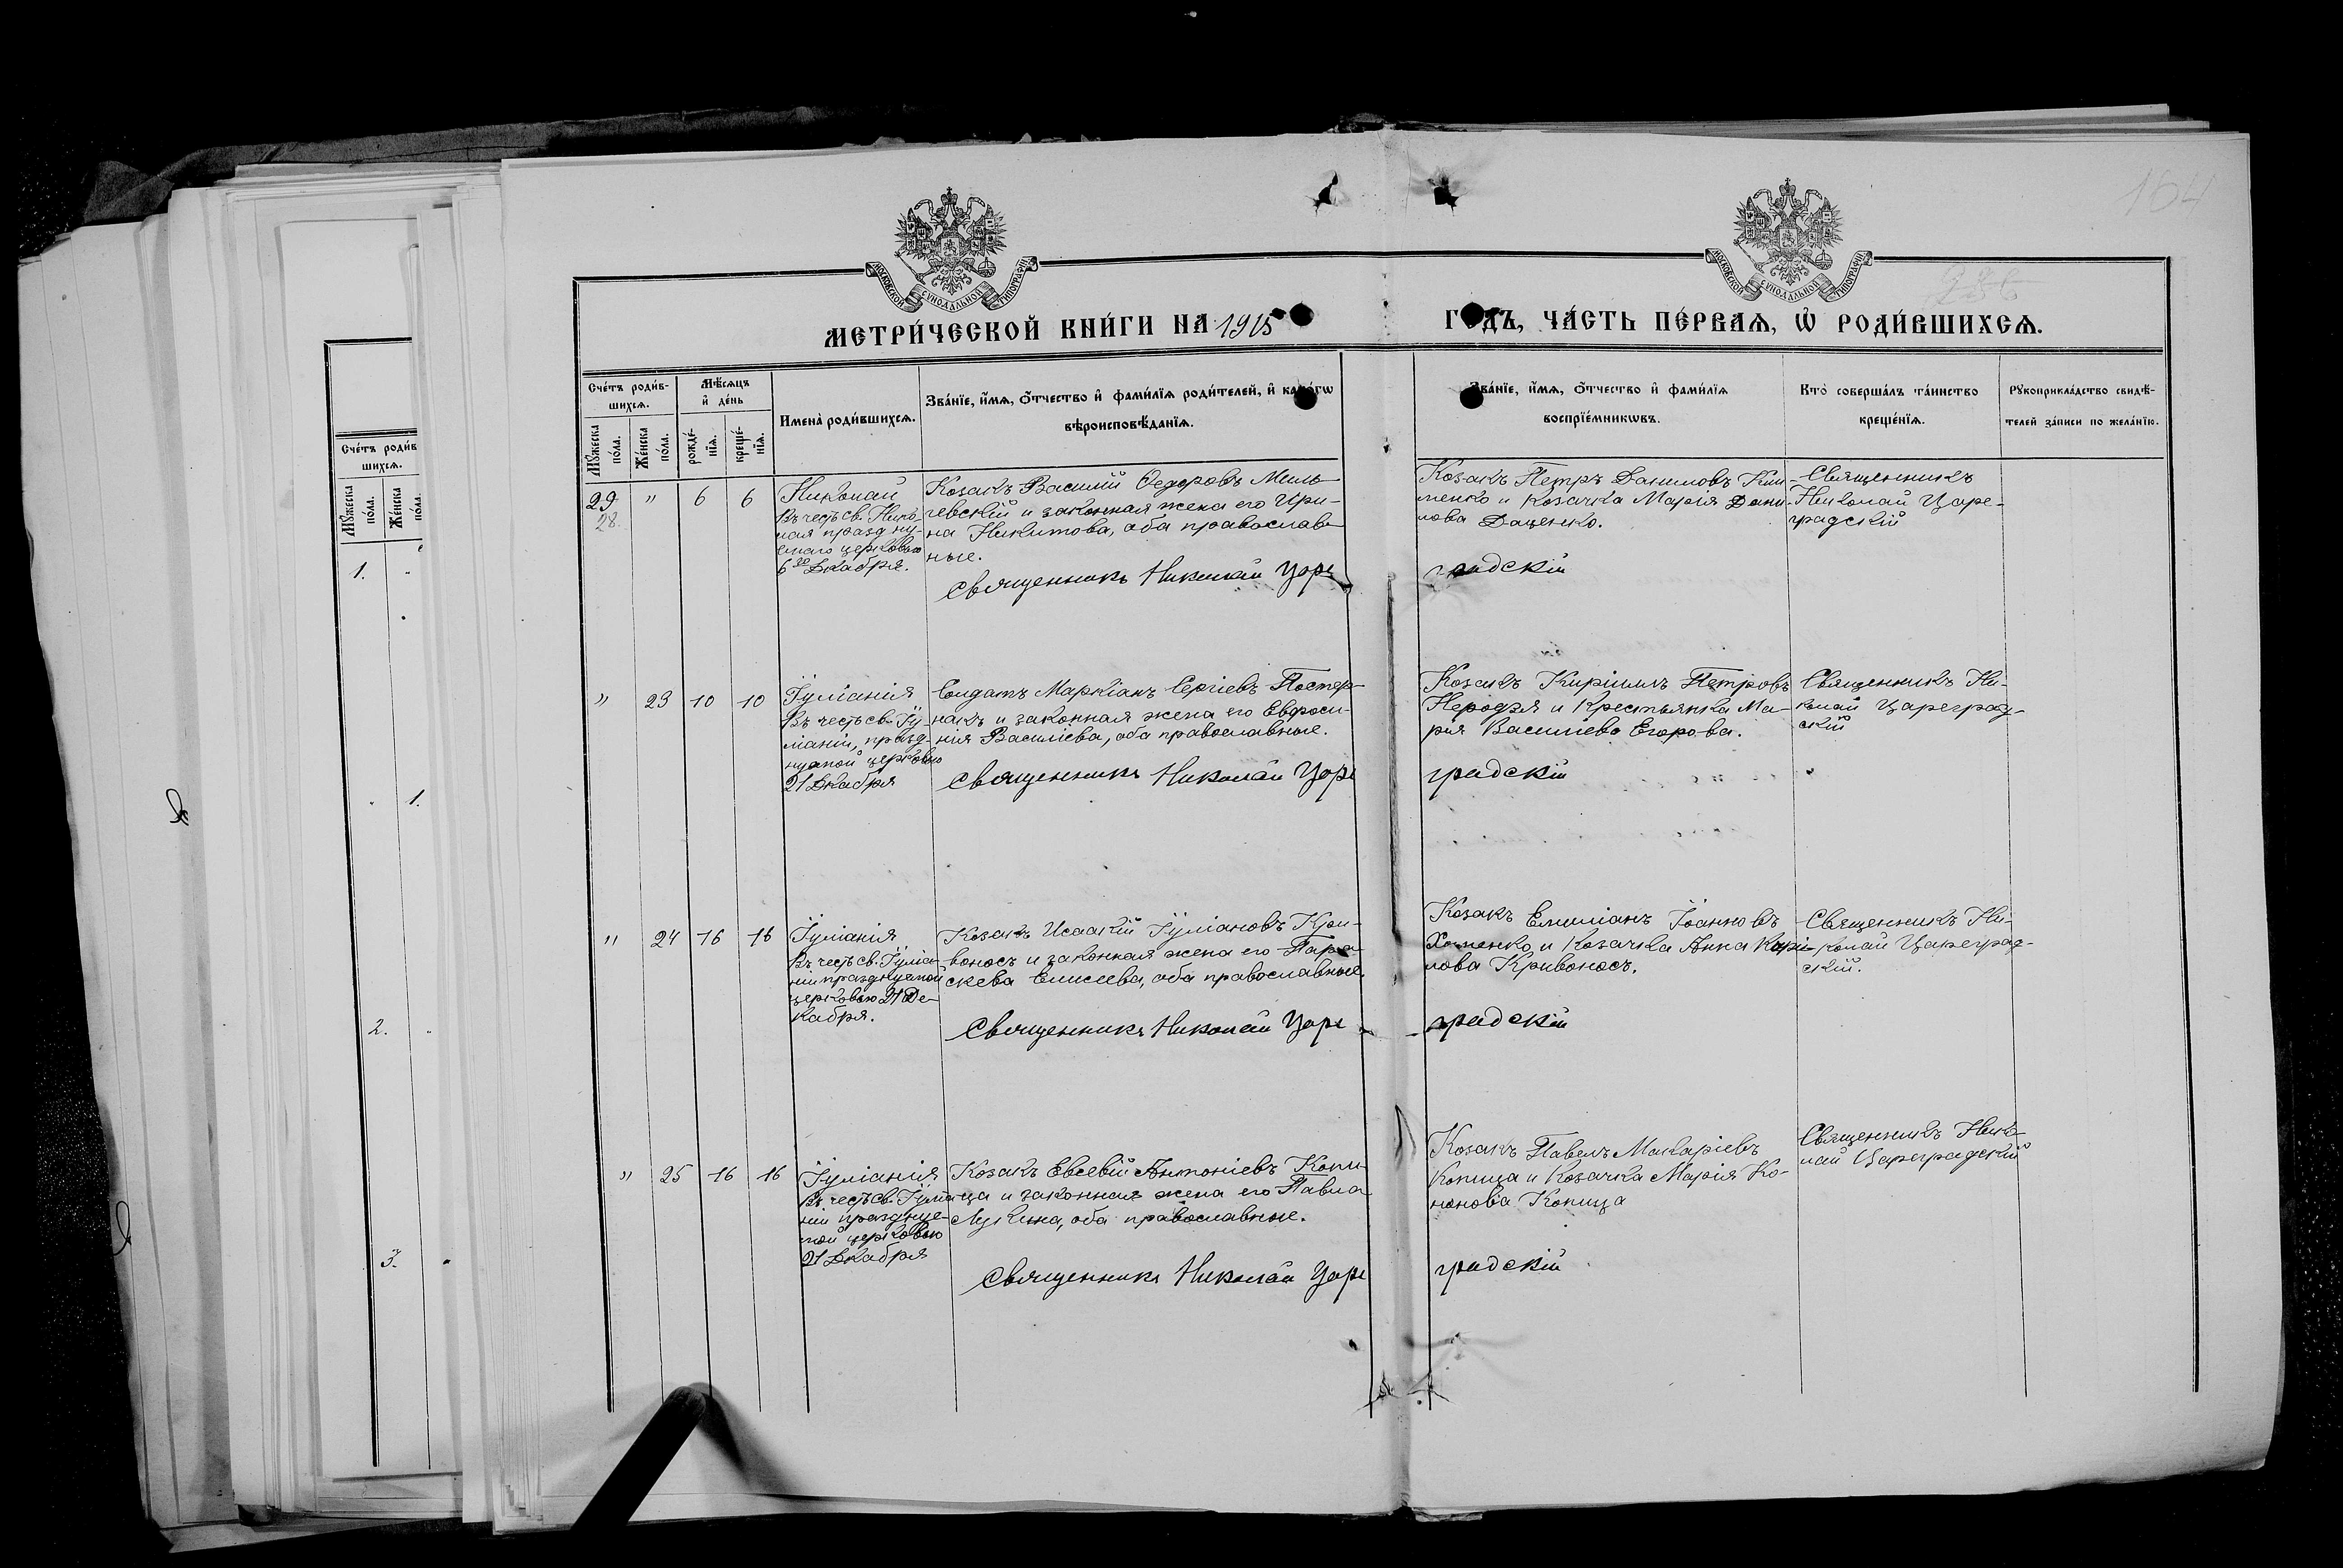 164
286
МОСКОВСКОЙ СѴНОДАЛЬНОЙ ТИПОГРАФІИ
МОСКОВСКОЙ СѴНОДАЛЬНОЙ ТИПОГРАФІИ
МЕТРИ́ЧЕСКОЙ КНИ́ГИ НА 1915
ГОДЪ, ЧА́СТЬ ПЕ́РВАѦ, Ѡ҆ РОДИ́ВШИХСѦ.
Сче́тъ роди́в-
шихсѧ.
Мꙋ́жеска по́ла.
Же́нска по́ла.
Мѣ́сѧцъ
и҆ де́нь
рожде́-
нїѧ.
креще́-
нїѧ.
Имена̀ роди́вшихсѧ.
Зва́нїе, и҆́мѧ, о҆́тчество и҆ фами́лїѧ роди́телей, и҆ како́гѡ
вѣроисповѣ́данїѧ.
Зва́нїе, и҆́мѧ, о҆́тчество и҆ фами́лїѧ
воспрїе́мникѡвъ.
Кто̀ соверша́лъ та́инство
креще́нїѧ.
Рꙋкоприкла́дство свидѣ́-
телей за́писи по жела́нїю.
29 " 6 6
28.
Николай
Въ честь св. Нико-
лая празд ну-
емаго церковью
6го Декабря.
Козакъ Василій Ѳедоровъ Миль
чевскій и законная жена его Ири-
на Никитова, оба православ
ные.
Священникъ Николай Царе
градскій
Козакъ Петръ Даниловъ Кли
менко и Козачка Марія Дани
лова Даценко.
Священникъ
Николай Царе-
градскій
" 23 10 10
Іуліанія
Въ честь св. Іу-
ліаніи, празд-
нуемой церковью
21 Декабря
Солдатъ Маркіанъ Сергіевъ Постер-
накъ и законная жена его Евфроси-
нія Василіева, оба православные.
Священникъ Николай Царе
градскій
Козакъ Кириллъ Петровъ
Неродзя и Крестьянка Ма-
рія Василіева Егорова.
Священникъ Ни-
колай Цареград-
скій
" 24 16 16
Іуліанія
Въ честь св. Іуліа-
ніи празднуемой
церковью 21 Де-
кабря.
Козакъ Исаакій Іуліановъ Кри-
воносъ и законная жена его Пара-
скева Елисеева, оба православные.
Священникъ Николай Царе
градскій
Козакъ Емиліанъ Іоанновъ
Хоменко и Козачка Анна Кири-
лова Кривоносъ.
Священникъ Ни-
колай Цареград-
скій.
" 25 16 16
Іуліанія
Въ честь св. Іуліа
ніи празднуе-
мой церковью
21 Декабря
Козакъ Евсевій Антоніевъ Копи-
ца и законная жена его Павла
Лукина, оба православные.
Священникъ Николай Царе
градскій
Козакъ Павелъ Макаріевъ
Копица и Козачка Марія Ко-
нонова Копица
Священникъ Нико
лай Цареградскій
Сче́тъ роди́в
шихсѧ.
Мꙋ́жеска по́ла.
Же́нска по́ла.
1.
1.
2.
3.